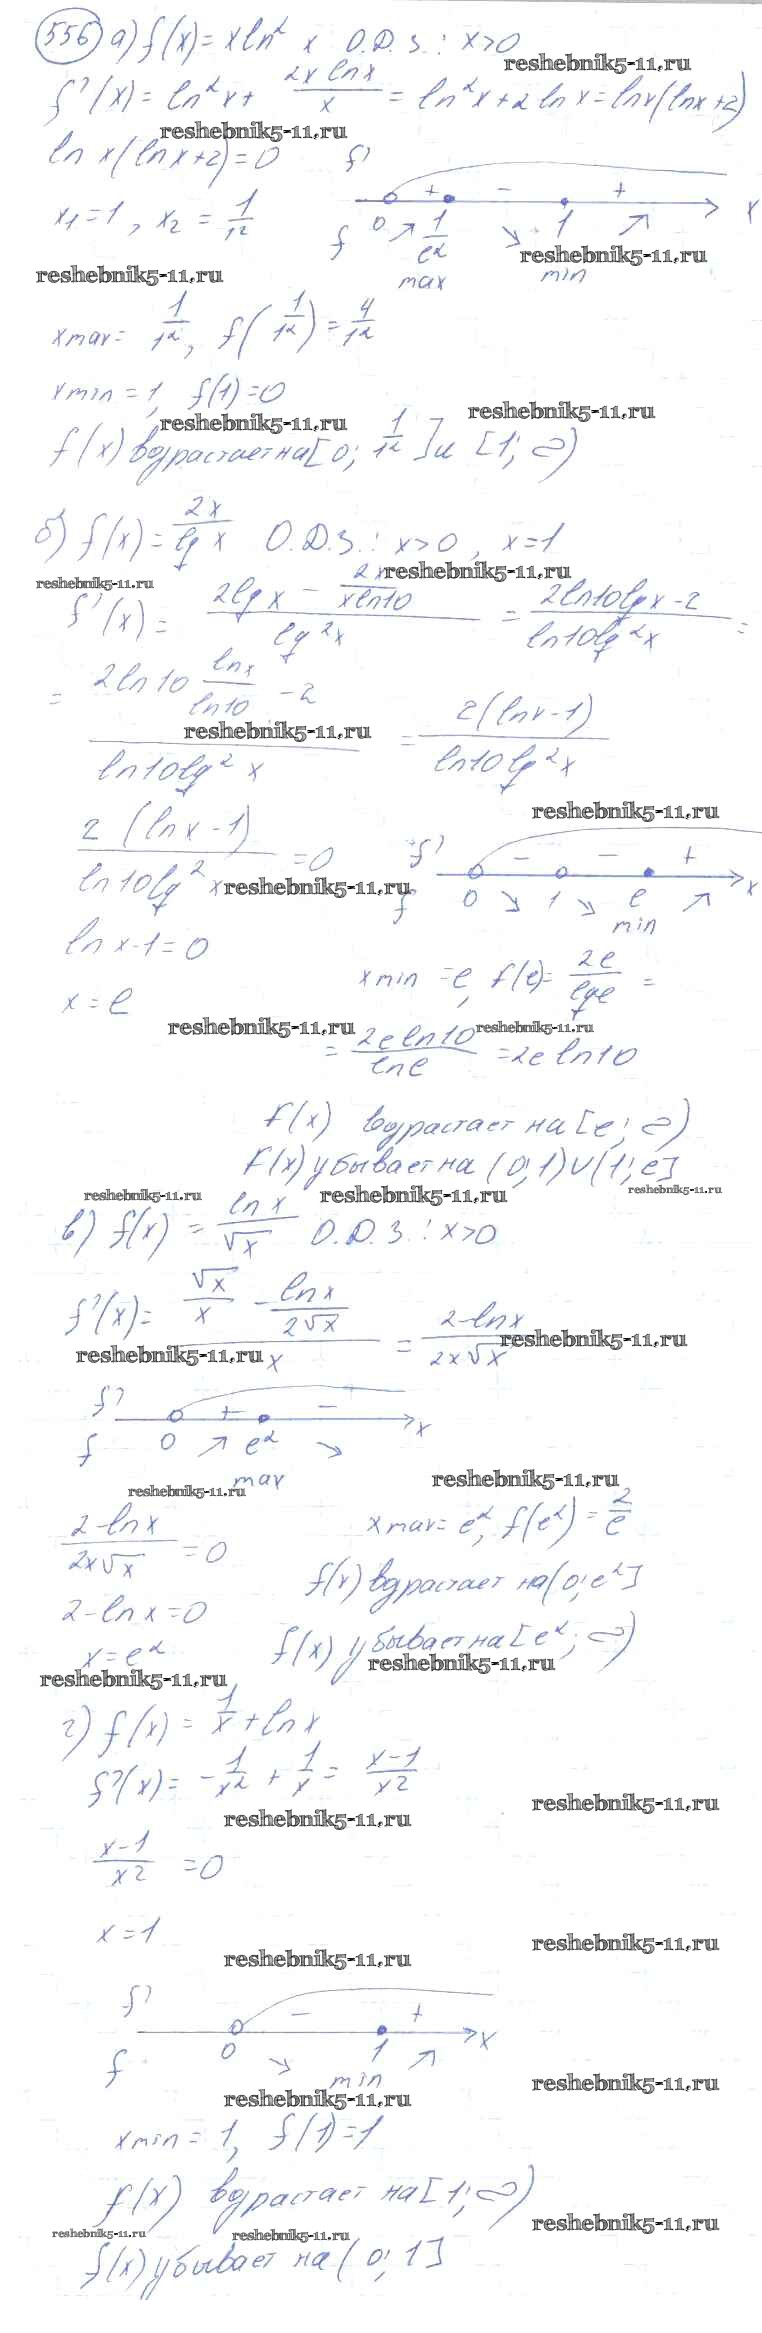 556 а) f(x) = x ln² x О.Д.З.: x>0
reshebnik5-11.ru
f'(x) = ln²x + 2x lnx / x = ln²x + 2 ln x = lnx(lnx+2)
reshebnik5-11.ru
ln x(lnx+2)=0
f' + - + x
x₁=1, x₂ = 1/1²
f 0 ↗ 1/e² ↘ 1 ↗
max min
reshebnik5-11.ru reshebnik5-11.ru
xmax= 1/1², f(1/1²) = 4/1²
xmin = 1, f(1)=0
reshebnik5-11.ru reshebnik5-11.ru
f(x) возрастает на [0; 1/1²] и [1; ∞)
б) f(x) = 2x / lg x О.Д.З.: x>0, x=1
reshebnik5-11.ru reshebnik5-11.ru
f'(x) = (2lg x - 2x/xln10) / lg²x = (2ln10lgx-2) / ln10lg²x =
= (2ln10 lnx/ln10 - 2) / ln10lg²x = 2(lnx-1) / ln10lg²x
reshebnik5-11.ru
reshebnik5-11.ru
2(lnx-1) / ln10lg²x = 0
reshebnik5-11.ru
f' - - + x
f 0 ↘ 1 ↘ e ↗
min
ln x-1=0
x = e
xmin = e, f(e) = 2e / lge =
reshebnik5-11.ru reshebnik5-11.ru
= 2e ln10 / lne = 2e ln10
f(x) возрастает на [e; ∞)
f(x) убывает на (0;1)∪(1;e]
reshebnik5-11.ru reshebnik5-11.ru reshebnik5-11.ru
в) f(x) = ln x / √x О.Д.З.: x>0
f'(x) = (√x/x - lnx/2√x) / x = 2-lnx / 2x√x
reshebnik5-11.ru reshebnik5-11.ru
f' + - x
f 0 ↗ e² ↘
max
reshebnik5-11.ru reshebnik5-11.ru
2-lnx / 2x√x = 0
xmax = e², f(e²) = 2/e
2-lnx=0
f(x) возрастает на (0; e²]
x=e²
f(x) убывает на [e²; ∞)
reshebnik5-11.ru reshebnik5-11.ru
г) f(x) = 1/x + lnx
f'(x) = -1/x² + 1/x = x-1 / x²
reshebnik5-11.ru reshebnik5-11.ru
x-1 / x² = 0
x=1
reshebnik5-11.ru reshebnik5-11.ru
f' - + x
f 0 ↘ 1 ↗
min
reshebnik5-11.ru reshebnik5-11.ru
xmin = 1, f(1)=1
f(x) возрастает на [1; ∞)
reshebnik5-11.ru reshebnik5-11.ru reshebnik5-11.ru
f(x) убывает на (0; 1]